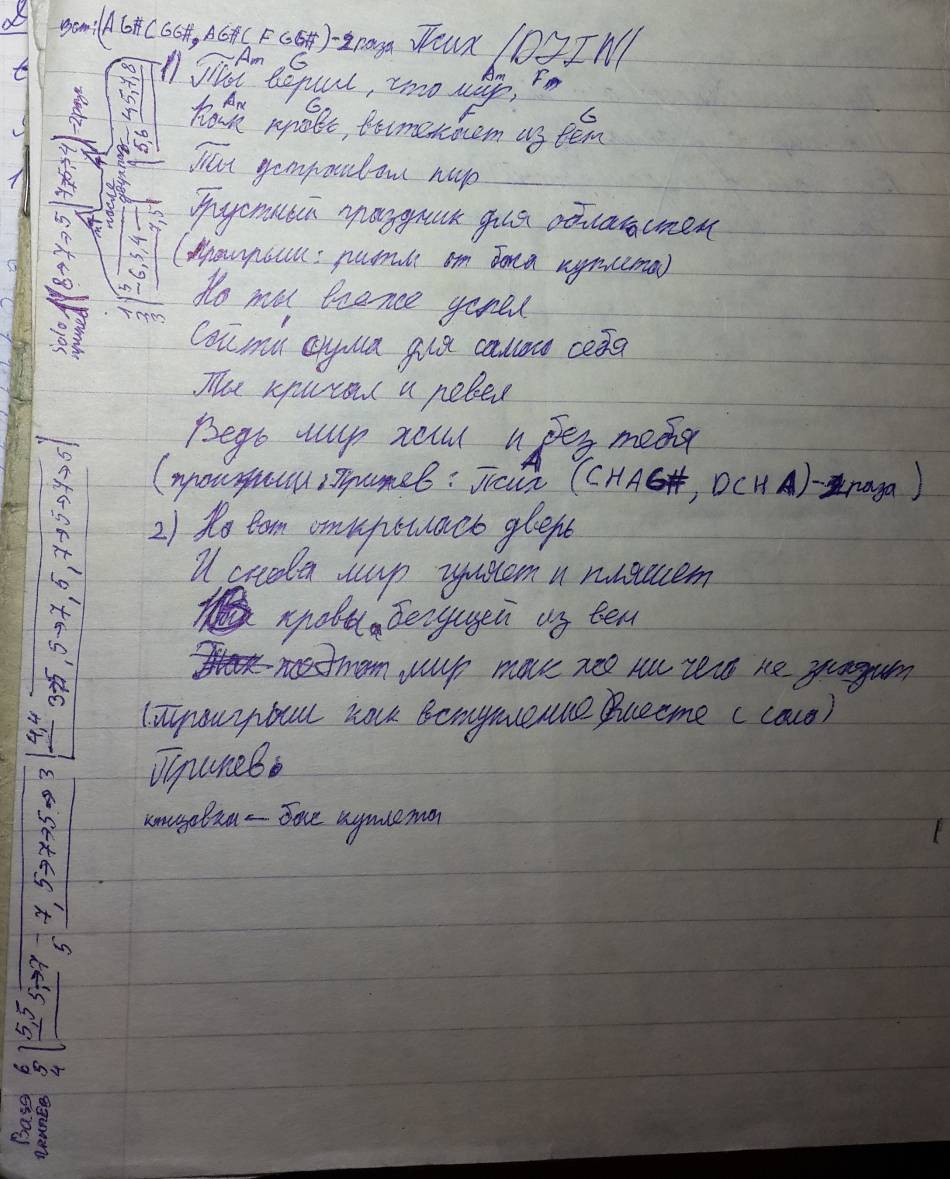 вст: (AG#CGG#, AG#CFGG#) - 2 раза Псих /DJIN/
Am G Am Fm
1) Ты верил, что мир,
Am G F G
Как кровь, вытекает из вен
Ты устраивал пир
Грустный праздник для облака, стен
(проигрыш: ритм от баса куплета)
Но ты все же успел
Сойти с ума для самого себя
Ты кричал и ревел
Ведь мир жил и без тебя
(проигрыш: Припев: Псих A (CHAG#, DCHA) - 2 раза)
2) Но вот открылась дверь
И снова мир гуляет и пляшет
В кровы бегущей из вен
Этот мир так же ни чего не значит
(Проигрыш как вступление вместе с соло)
Припев:
концовка - бас куплета
Solo
припев
8→7→5
- 2 раза
после
1 5
2 -6,5,4
3 7,5
5,6 4,5,7,8
Bass
припев
6 5,5 4,4
5 5→7 - 7, 5→7→7→5→3 375, 5→7, 5, 7→5→7→5
4 5